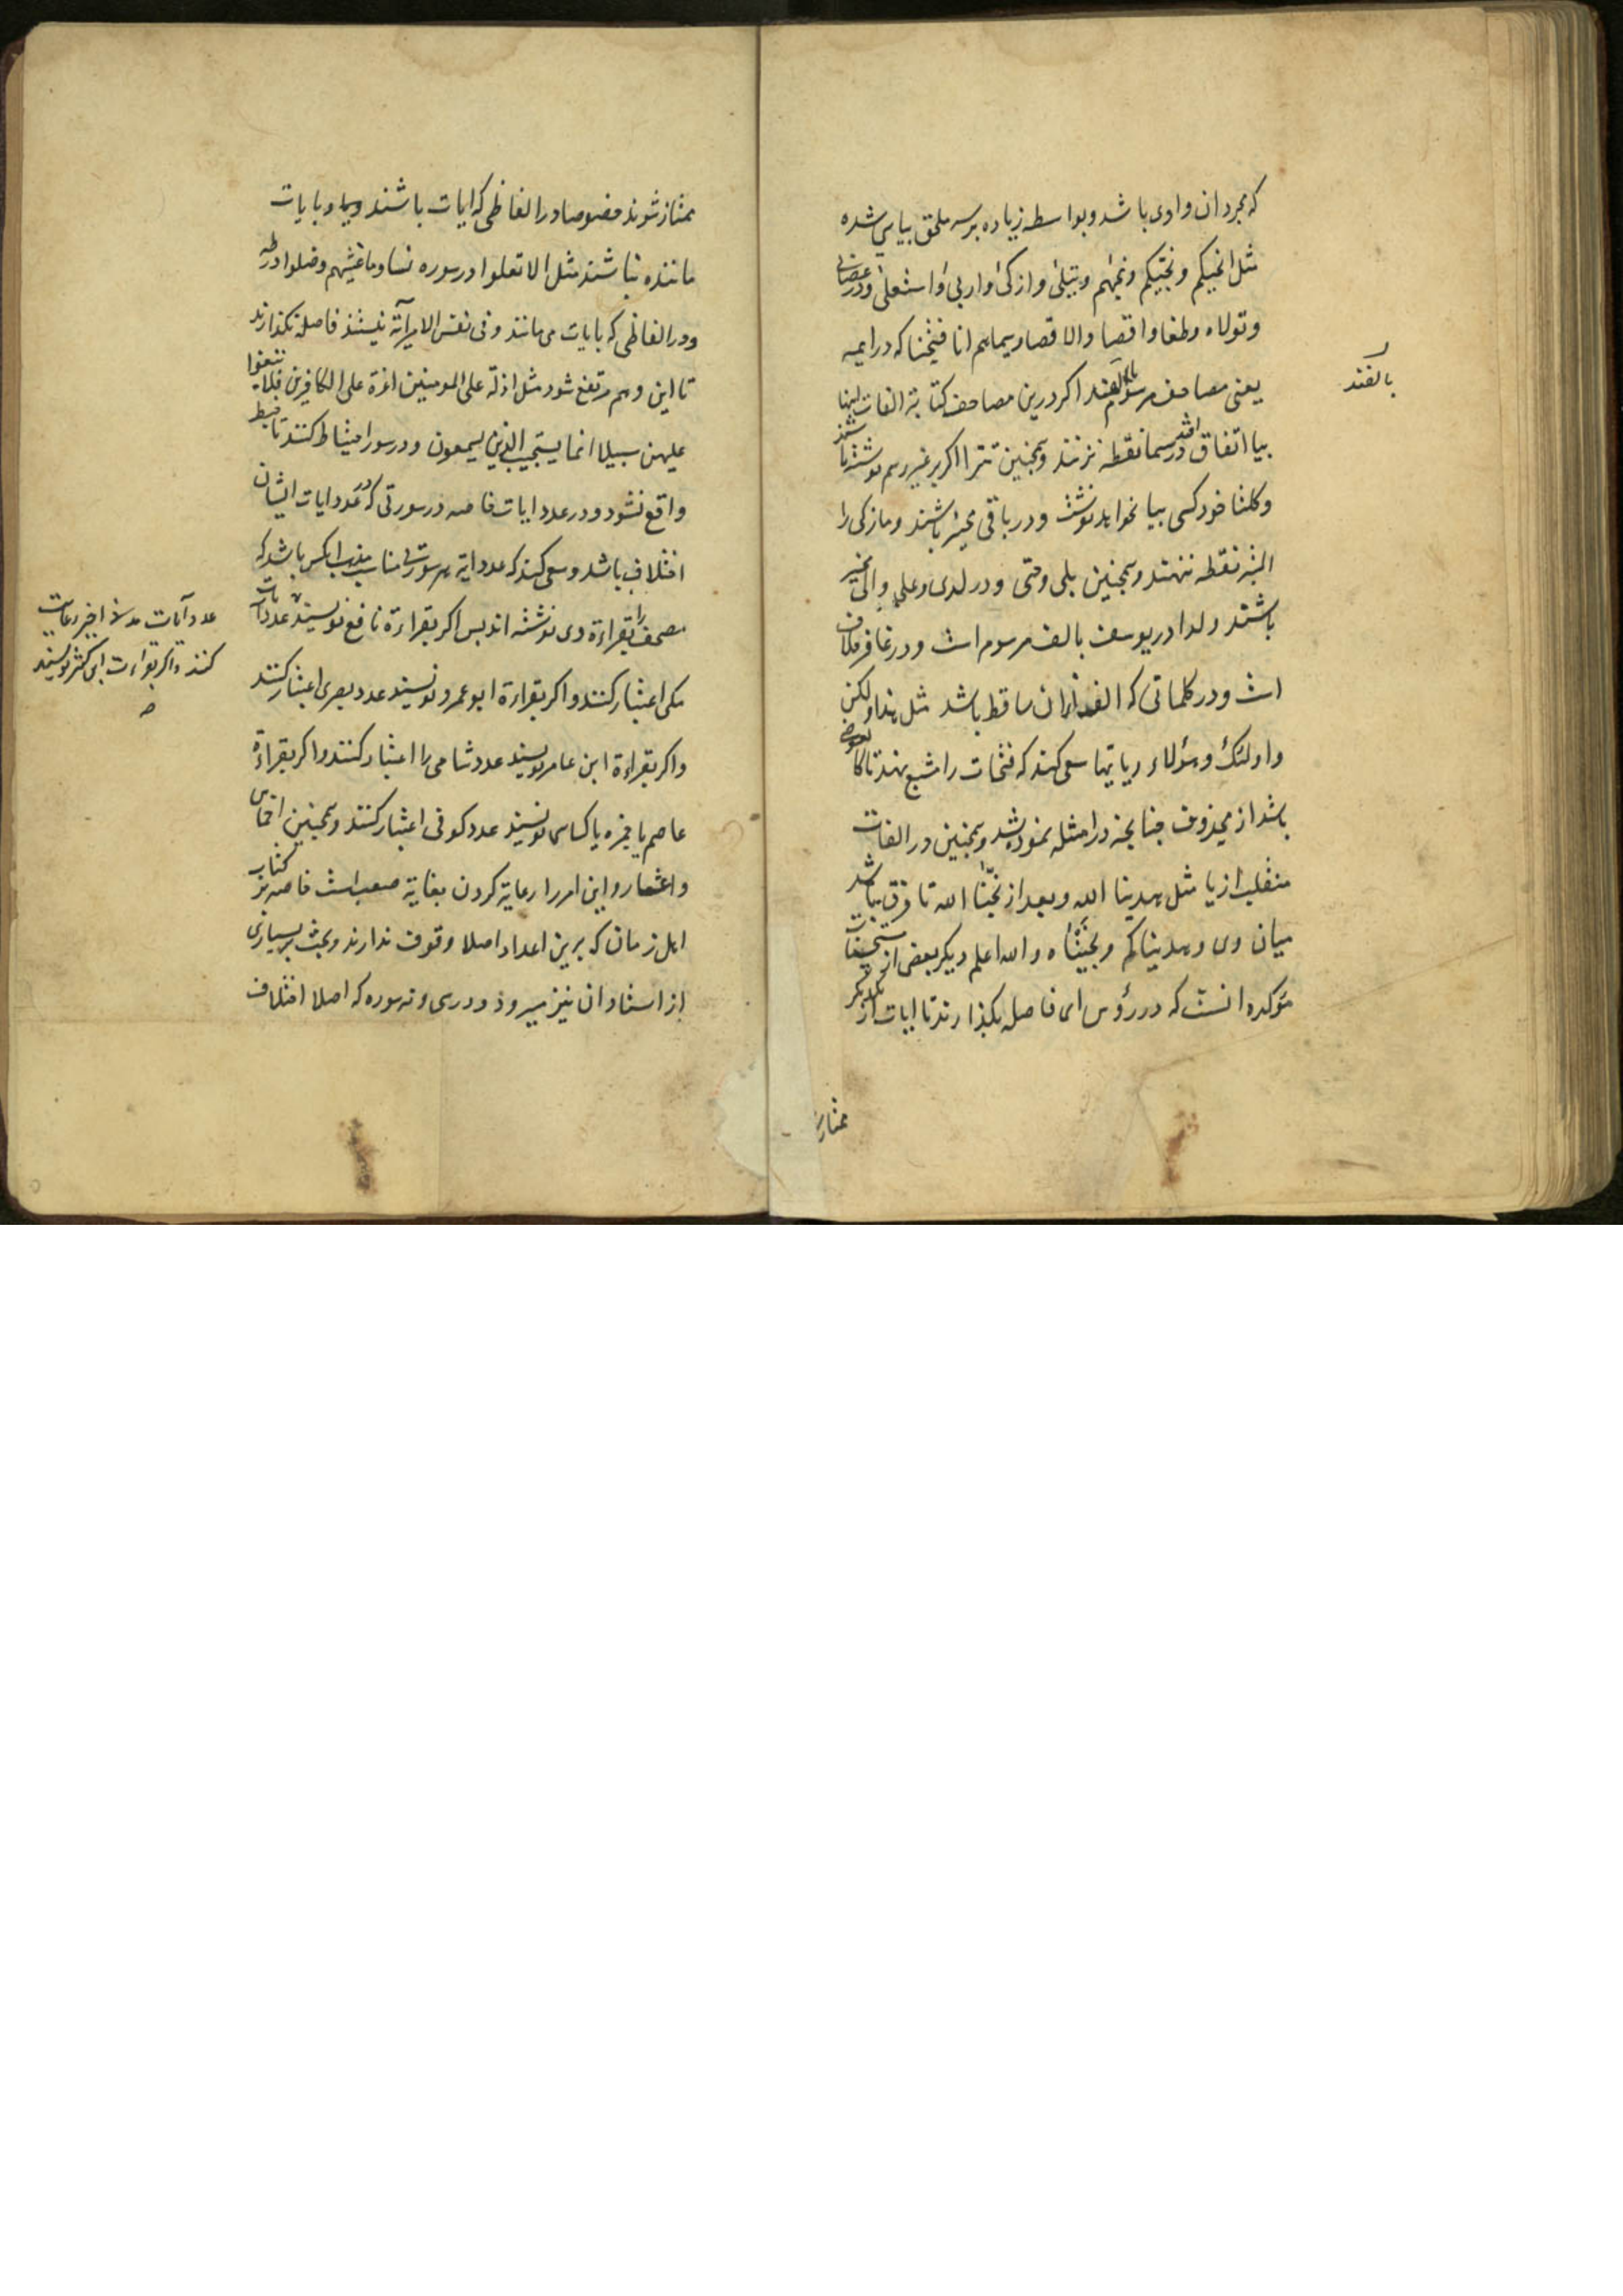 که مجرد ان واوی باشد و بواسطه زیاده بر سه ملحق بیایی شده
مثل انجیکم و نجیکم و نجیهم و یتبلی و ازکی و اربی و استعلی و در عصانی
و تولاه و طغا و اقصا و الاقصا و سیماهم انا فتحنا که در ایمه
یعنی مصاحف مرسوم بالفند اگر درین مصاحف کتابة الفات اینها
بیا اتفاق افتد در سیما نقطه نزنند و همچنین تترا اگر بر غیر رسم نوشته باشند
و کلتا خود کسی بیا نخواهد نوشت و در باقی مخیر باشند و مازکی را
البته نقطه ننهند و همچنین بلی و حتی و در لدی و علی و الی مخیر
باشند و لدا در یوسف بالف مرسوم است و در غافر بیا
است و در کلماتی که الف ازان ساقط باشد مثل هذا و لکن
و اولئک و هؤلاء و یایها سعی کنند که فتحات را مشبع نهند تا کالعوض
باشد از محذوف چنانچه در امثله نموده شد و همچنین در الفات
منقلب از یا مثل هدینا الله و بعد از نجینا الله تا فرق باشد
میان وی و هدیناکم و نجیناه و الله اعلم دیگر بعضی از مستحسنات
مؤکده انست که در رؤس ای فاصله بگذارند تا ایات از یکدیگر
ممتاز
بالفند
ممتاز شوند خصوصا در الفاظی که ایات باشند و بیا و بایات
ماننده نباشند مثل الا تعلوا در سوره نسا و ما غشیهم و ضلوا در طه
و در الفاظی که بایات می مانند و فی نفس الامر آیة نیستند فاصله نگذارند
تا این وهم مرتفع شود مثل اذلة علی المومنین اعزة علی الکافرین فلا تبغوا
علیهن سبیلا انما یستجیب الذین یسمعون و در سور احتیاط کنند تا خبط
واقع نشود و در عدد ایات خاصه در سورتی که در عدد ایات ایشان
اختلاف باشد و سعی کنند که عدد ایه هر سورتی مناسب مذهب انکس باشد که
مصحف را بقراءة وی نوشته اند پس اگر بقراءة نافع نویسند عدد ایات
مکی اعتبار کنند و اگر بقراءة ابو عمرو نویسند عدد بصری اعتبار کنند
و اگر بقراءة ابن عامر نویسند عدد شامی را اعتبار کنند و اگر بقراءة
عاصم یا حمزه یا کسایی نویسند عدد کوفی اعتبار کنند و همچنین اخماس
و اعشار و این امر را رعایة کردن بغایة صعب است خاصه بر کتاب
اهل زمان که برین اعداد اصلا وقوف ندارند و بحث بر بسیاری
از استادان نیز میرود و در سی و نه سوره که اصلا اختلاف
عدد آیات مدنی اخیر رعایت
کنند و اگر بقراءت ابن کثیر نویسند